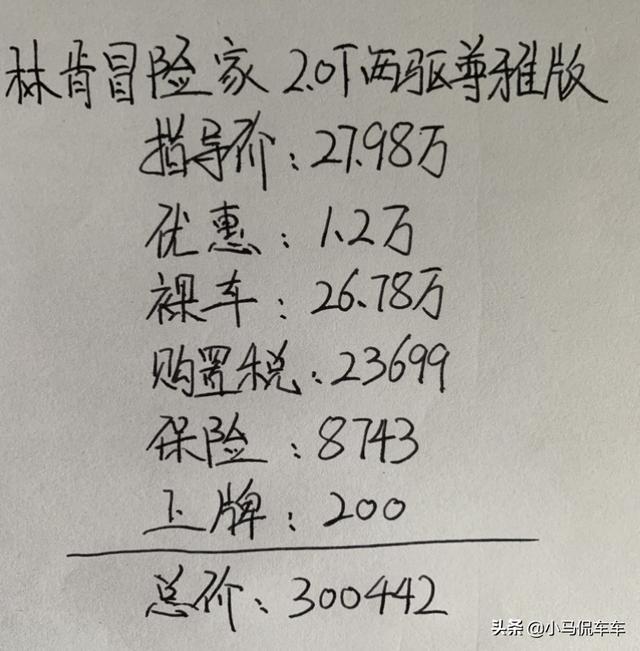 林肯冒险家 2.0T两驱尊雅版
指导价：27.98万
优惠：1.2万
裸车：26.78万
购置税：23699
保险：8743
上牌：200
总价：300442
头条 @小马侃车车